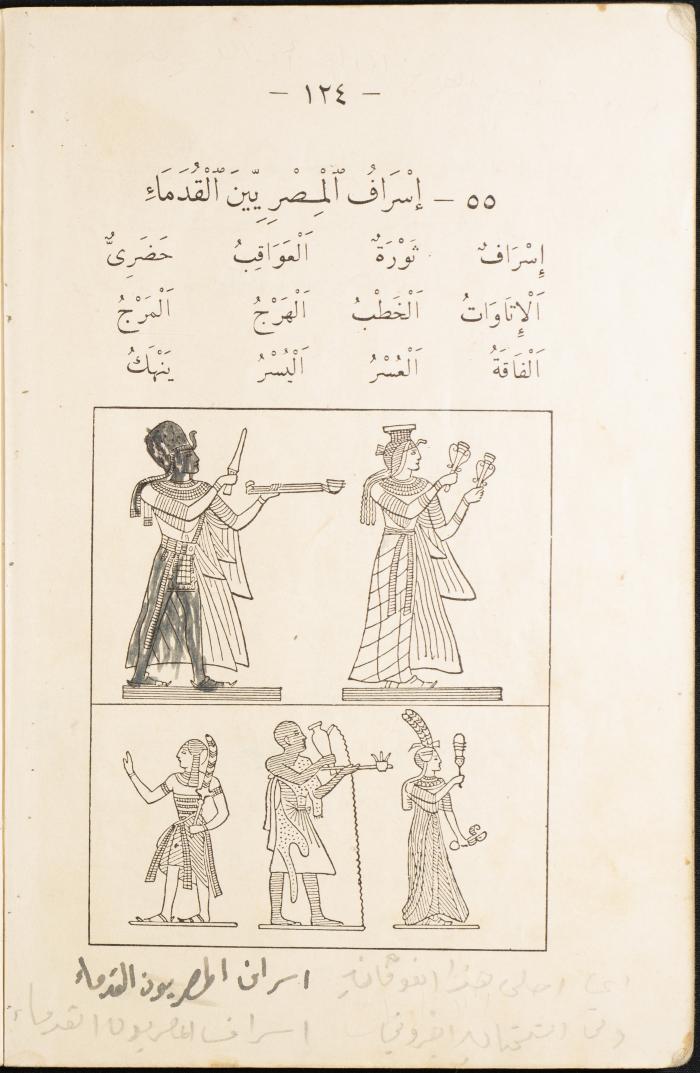 — ١٢٤ —
٥٥ — إِسْرَافُ ٱلْمِصْرِيِّينَ ٱلْقُدَمَاءِ
إِسْرَافٌ ثَوْرَةٌ اَلْعَوَاقِبُ حَضَرِيٌّ
اَلْإِتَاوَاتُ اَلْخَطْبُ اَلْهَرْجُ اَلْمَرْجُ
اَلْفَاقَةُ اَلْعُسْرُ اَلْيُسْرُ يَنْهَكُ
اسراف المصريون القدماء
اسراف المصريون القدماء